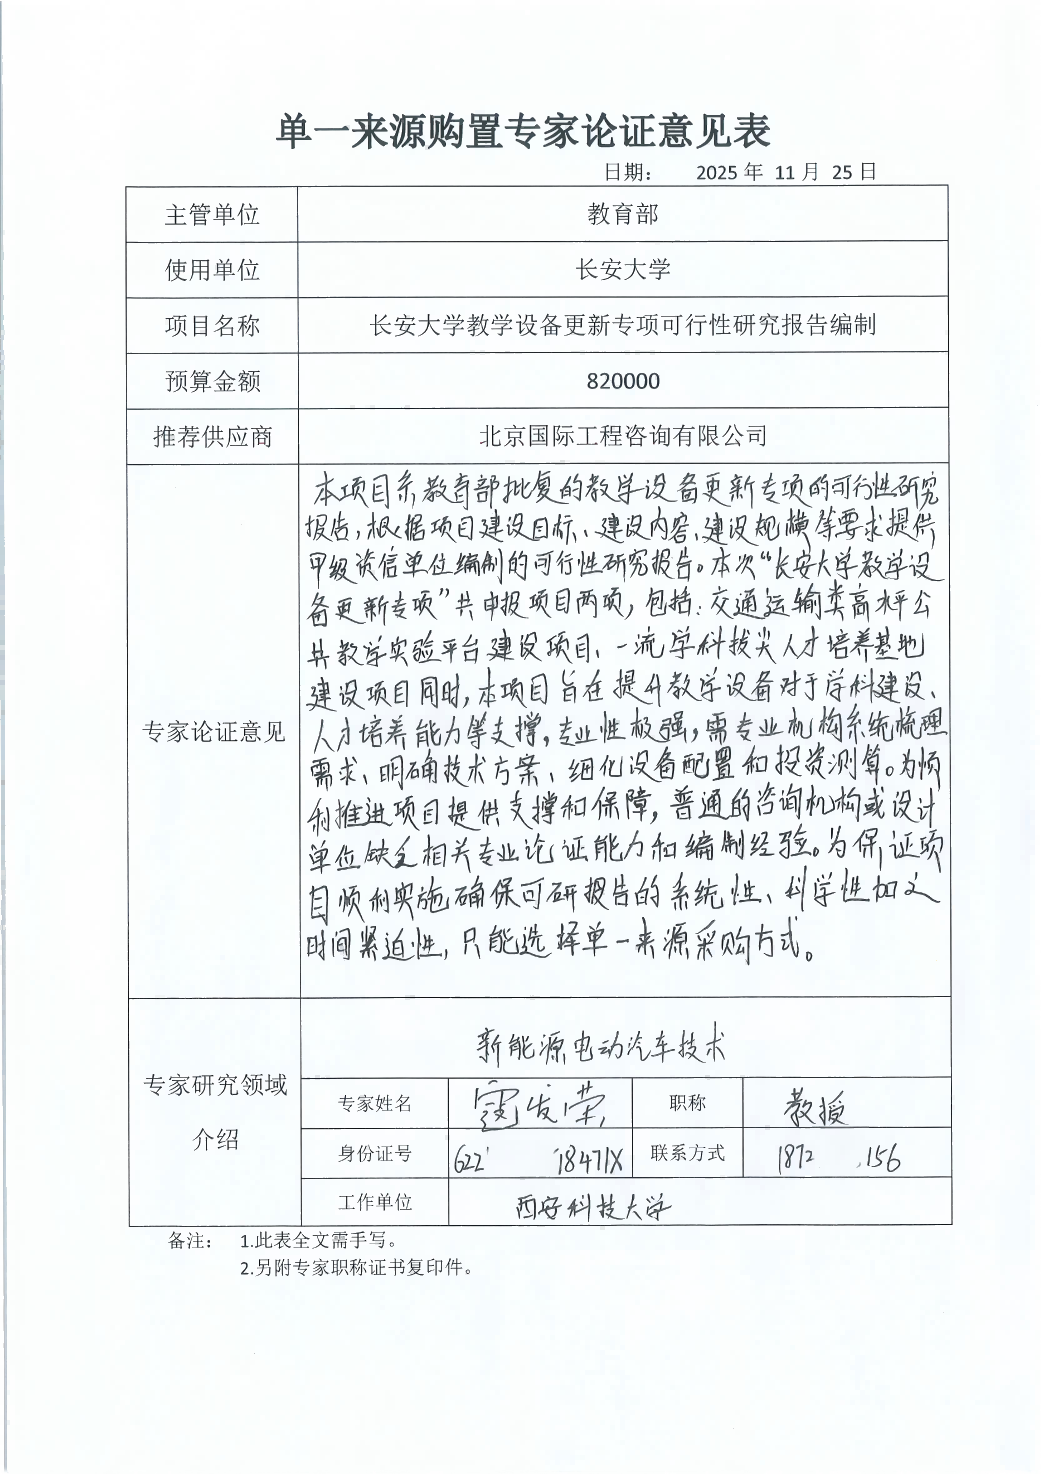 单一来源购置专家论证意见表
日期： 2025 年 11 月 25 日
主管单位 教育部
使用单位 长安大学
项目名称 长安大学教学设备更新专项可行性研究报告编制
预算金额 820000
推荐供应商 北京国际工程咨询有限公司
专家论证意见
本项目系教育部批复的教学设备更新专项的可行性研究
报告，根据项目建设目标、建设内容、建设规模等要求提供
甲级资信单位编制的可行性研究报告。本次“长安大学教学设
备更新专项”共申报项目两项，包括：交通运输类高水平公
共教学实验平台建设项目、一流学科拔尖人才培养基地
建设项目同时，本项目旨在提升教学设备对于学科建设、
人才培养能力等支撑，专业性极强，需专业机构系统梳理
需求、明确技术方案、细化设备配置和投资测算。为顺
利推进项目提供支撑和保障，普通的咨询机构或设计
单位缺乏相关专业论证能力和编制经验。为保证项
目顺利实施确保可研报告的系统性、科学性加之
时间紧迫性，只能选择单一来源采购方式。
专家研究领域
介绍
新能源电动汽车技术
专家姓名 寇发荣 职称 教授
身份证号 622 18471X 联系方式 1872 156
工作单位 西安科技大学
备注： 1.此表全文需手写。
2.另附专家职称证书复印件。